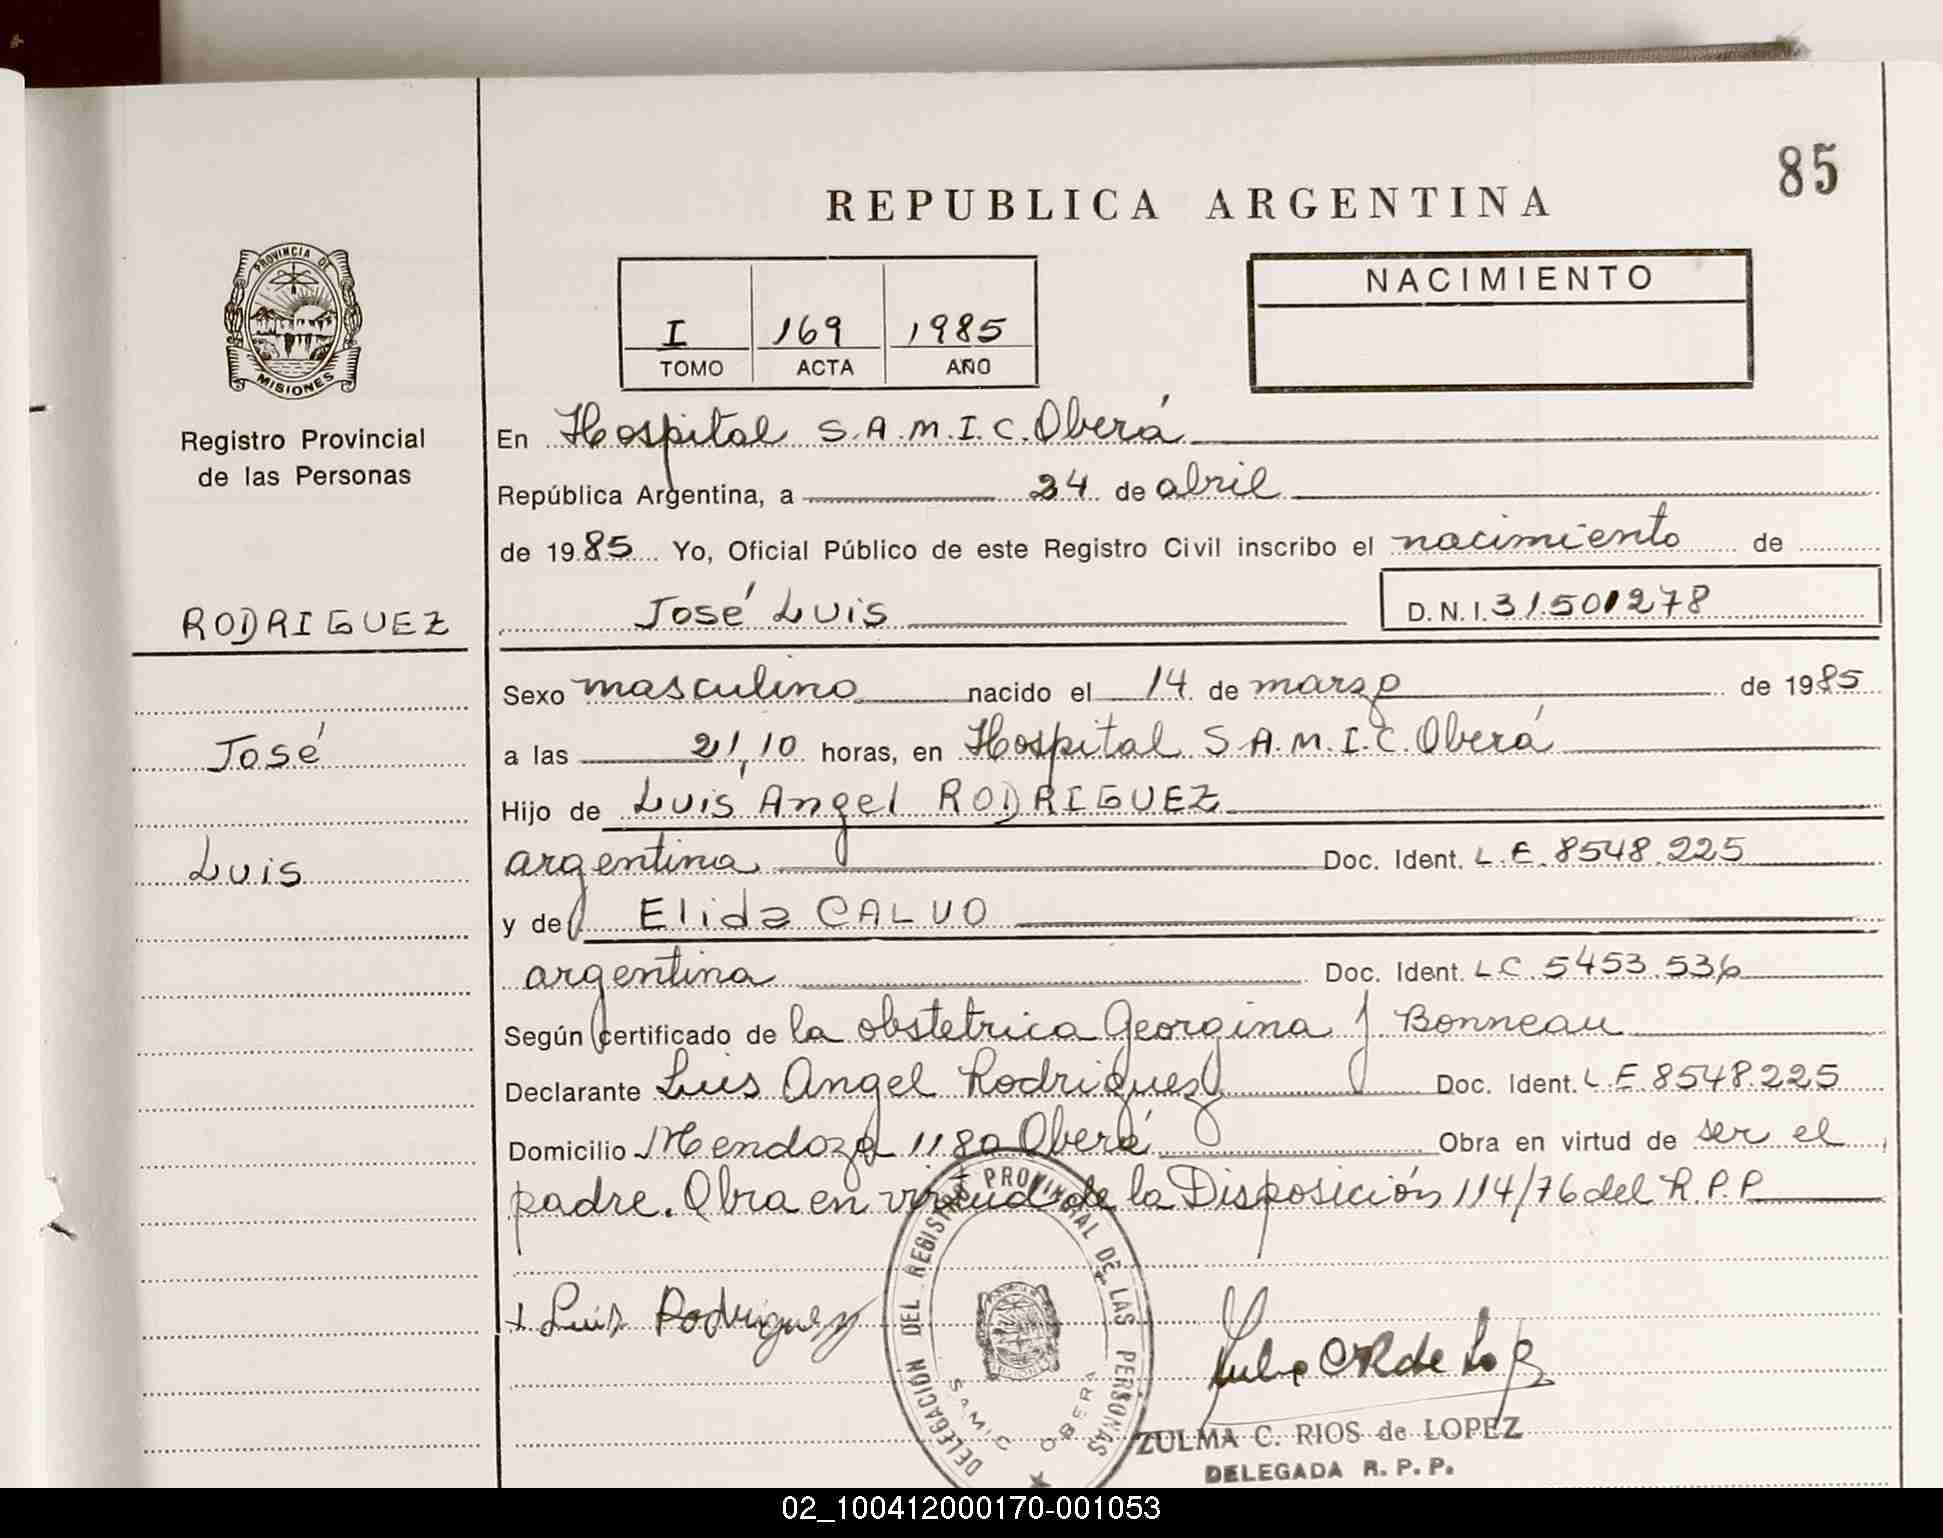 85
REPUBLICA ARGENTINA
PROVINCIA DE
MISIONES
Registro Provincial
de las Personas
RODRIGUEZ
José
Luis
I 169 1985
TOMO ACTA AÑO
NACIMIENTO
En Hospital S.A.M.I.C. Oberá
República Argentina, a 24 de abril
de 1985 Yo, Oficial Público de este Registro Civil inscribo el nacimiento de
José Luis D.N.I. 31.501278
Sexo masculino nacido el 14 de marzo de 1985
a las 21,10 horas, en Hospital S.A.M.I.C. Oberá
Hijo de Luis Ángel RODRIGUEZ
argentina Doc. Ident. L.E. 8548.225
y de Elida CALVO
argentina Doc. Ident. LC 5453.536
Según certificado de la obstetrica Georgina J Bonneau
Declarante Luis Angel Rodriguez Doc. Ident. L.E 8548.225
Domicilio Mendoza 1180 Oberá Obra en virtud de ser el
padre. Obra en virtud de la Disposición 114/76 del R.P.P.
+ Luis Rodriguez
DELEGACION DEL REGISTRO PROVINCIAL DE LAS PERSONAS
SAMIC OBERA
ZULMA C. RIOS de LOPEZ
DELEGADA R.P.P.
02_100412000170-001053